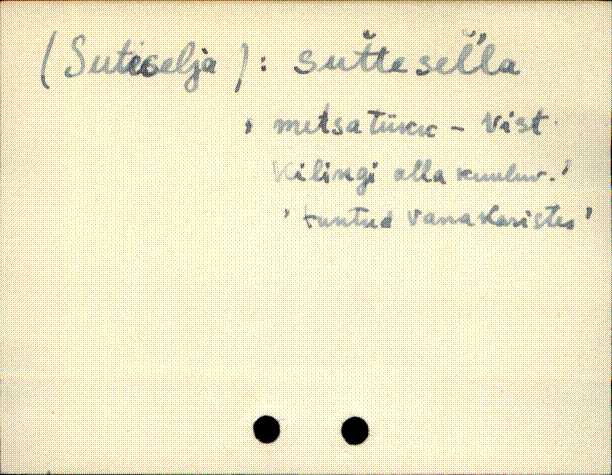 (Suteselja): sut̆te sel̆'l̆a
, metsatükk – Vist
Kilingi alla kuuluv.'
' tuntud Vana Karistes'